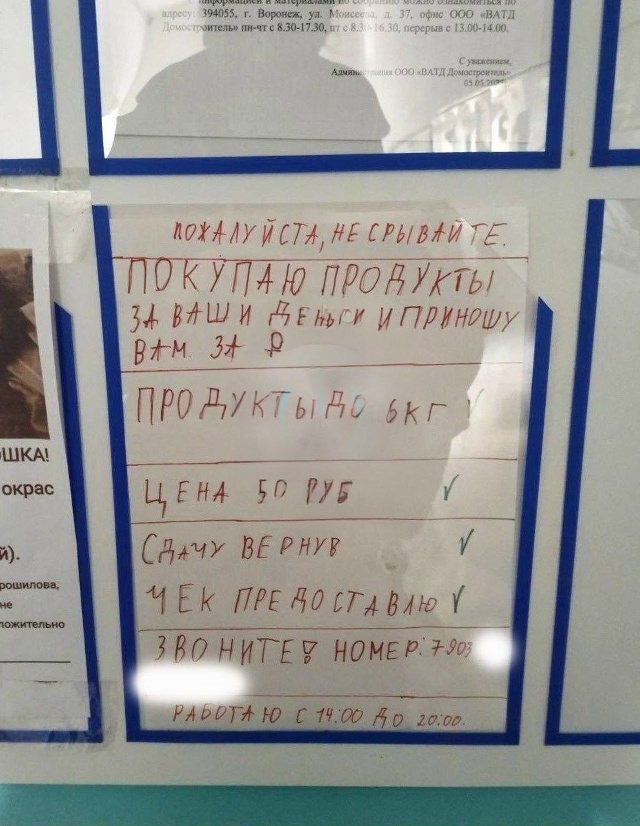 с информацией и материалами по собранию можно ознакомиться по
адресу: 394055, г. Воронеж, ул. Моисеева, д. 37, офис ООО «ВАТД
Домостроитель» пн-чт с 8.30-17.30, пт с 8.30-16.30, перерыв с 13.00-14.00.
С уважением,
Администрация ООО «ВАТД Домостроитель»
ПОЖАЛУЙСТА, НЕ СРЫВАЙТЕ.
ПОКУПАЮ ПРОДУКТЫ
ЗА ВАШИ ДЕНЬГИ И ПРИНОШУ
ВАМ ЗА ₽
ПРОДУКТЫ ДО 6КГ ✓
ЦЕНА 50 РУБ ✓
СДАЧУ ВЕРНУВ ✓
ЧЕК ПРЕДОСТАВЛЮ ✓
ЗВОНИТЕ! НОМЕР: 7903
РАБОТАЮ С 14:00 ДО 20:00.
ШКА!
окрас
й).
рошилова,
не
ложительно